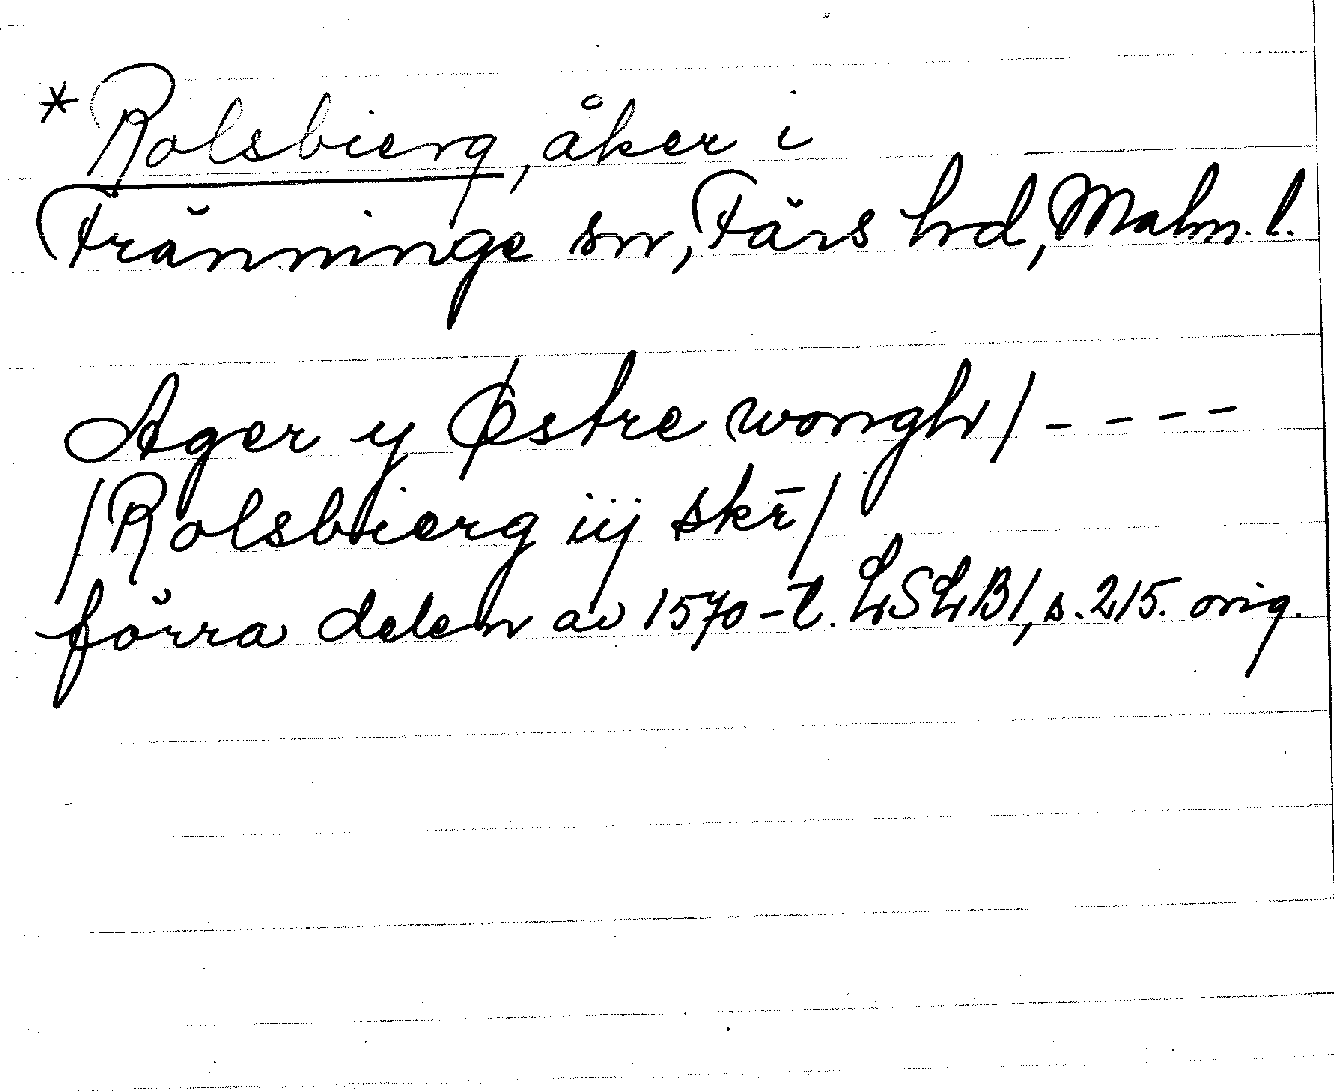 * Rolsbierg, åker i
Fränninge sn, Färs hd, Malm. l.
Ager y Østre wongh/ - - - -
/Rolsbierg iij skr̄/
förra delen av 1570-t. LSLB1, s. 215. orig.